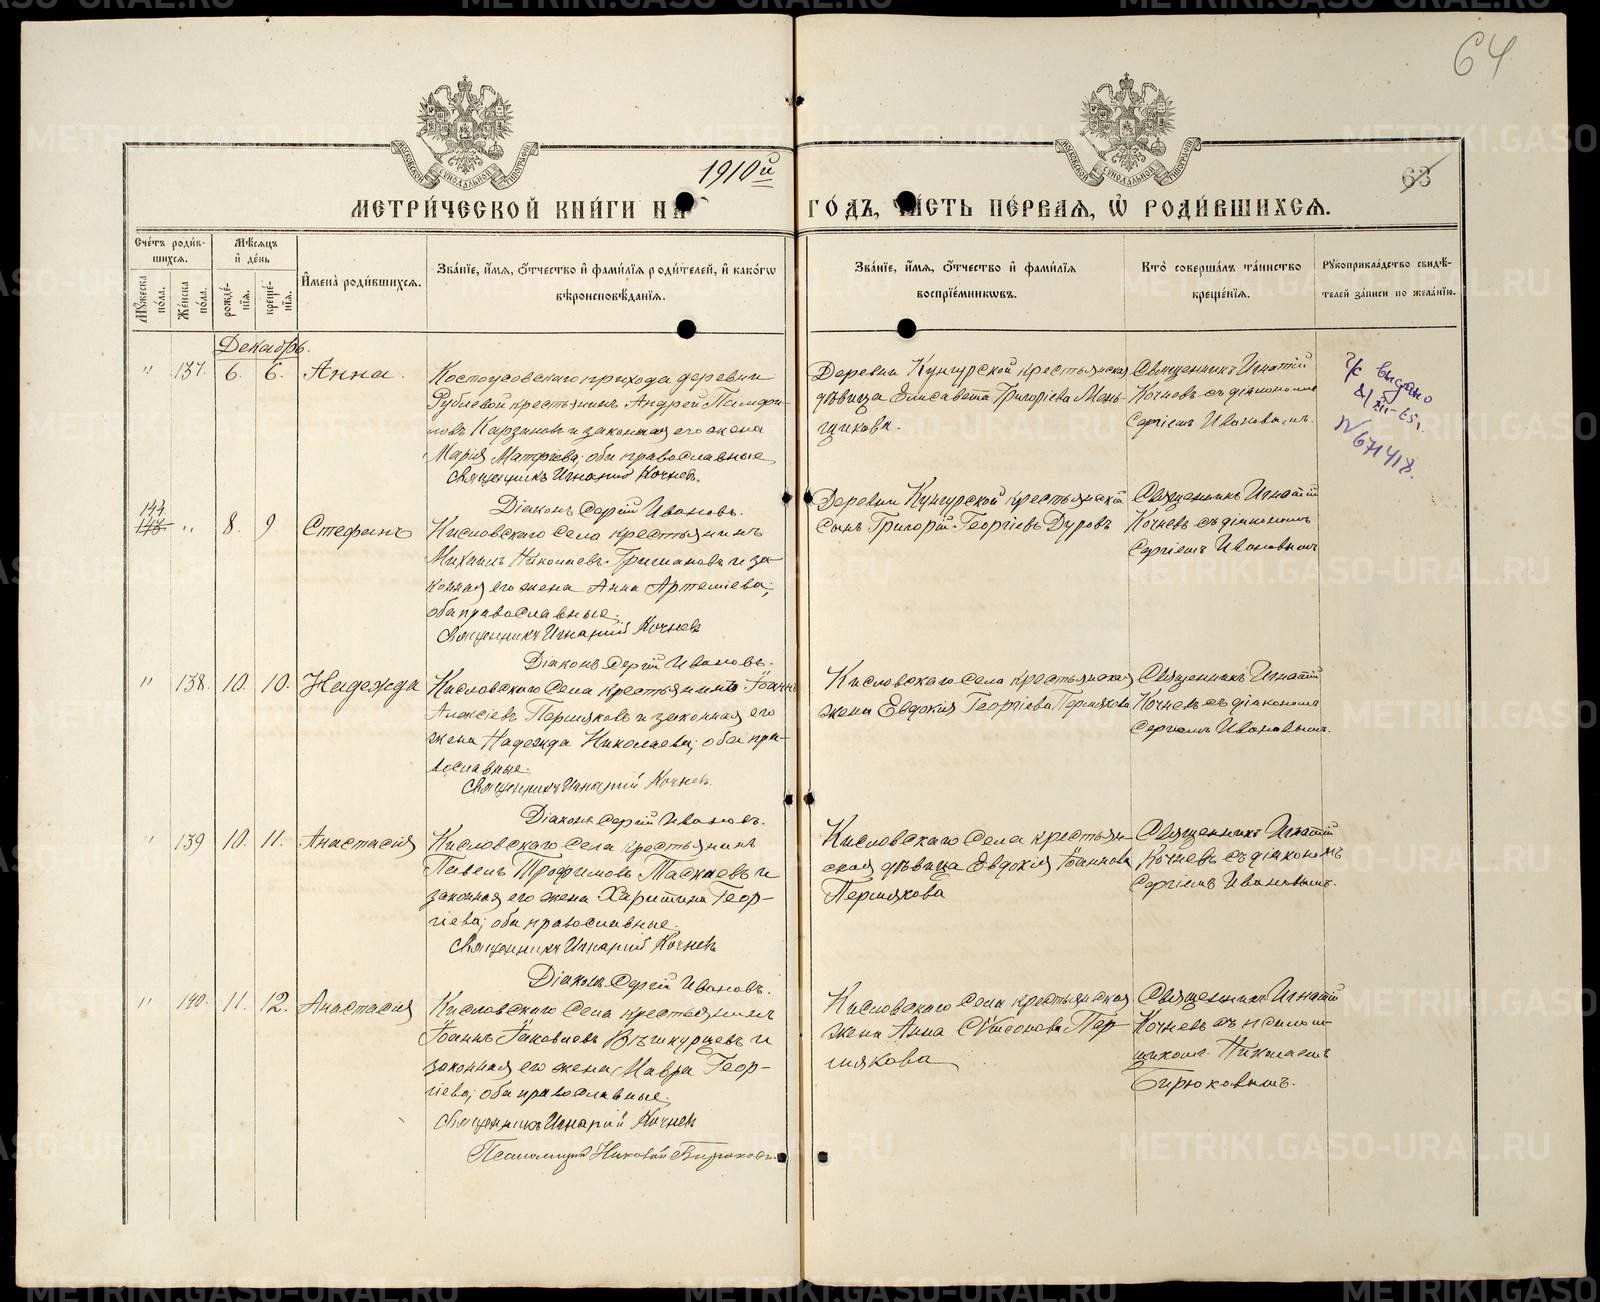 64
63
1910й
МЕТРИ́ЧЕСКОЙ КНИ́ГИ НА ГО́ДЪ, ЧА́СТЬ ПЕ́РВАЯ, Ѡ РОДИ́ВШИХСЯ.
Счётъ роди́в-
шихся.
Мѣ́сяцъ
и҆ де́нь
Му́жеска по́ла.
Же́нска по́ла.
рожде́-
нїя.
креще́-
нїя.
И҆мена̀ роди́вшихся.
Зва́нїе, и҆́мя, ѻ҆́тчество и҆ фами́лїя роди́телей, и҆ како́гѡ
вѣроисповѣ́данїя.
Зва́нїе, и҆́мя, ѻ҆́тчество и҆ фами́лїя
воспрїе́мникѡвъ.
Кто̀ соверша́лъ та́инство
креще́нїя.
Рꙋкоприкла́дство свидѣ́-
телей за́писи по жела́нїю.
Декабрь.
" 137. 6. 6. Анна.
Костоусовскаго прихода деревни
Рублевой крестьянинъ Андрей Памфи-
ловъ Карзановъ и законная его жена
Марія Матфіева; оба православные
Священникъ Игнатій Кочневъ.
Діаконъ Сергій Ивановъ.
Деревни Кунгурской крестьянская
дѣвица Елисавета Григоріева Мень-
щикова.
Священникъ Игнатій
Кочневъ съ діакономъ
Сергіемъ Ивановымъ.
выдано
N 671418
144.
143 " 8. 9 Стефанъ
Кисловскаго Села крестьянинъ
Михаилъ Николаевъ Гришановъ и за-
конная его жена Анна Артеміева;
оба православные.
Священникъ Игнатій Кочневъ
Діаконъ Сергій Ивановъ.
Деревни Кунгурской крестьянскій
сынъ Григорій Георгіевъ Дуровъ
Священникъ Игнатій
Кочневъ съ діакономъ
Сергіемъ Ивановымъ
" 138. 10. 10. Надежда
Кисловскаго Села крестьянинъ Іоаннъ
Алексіевъ Пермяковъ и законная его
жена Надежда Николаева; оба пра-
вославные.
Священникъ Игнатій Кочневъ.
Діаконъ Сергій Ивановъ.
Кисловскаго села крестьянская
жена Евдокія Георгіева Пермякова
Священникъ Игнатій
Кочневъ съ діакономъ
Сергіемъ Ивановымъ.
" 139 10. 11. Анастасія
Кисловскаго Села крестьянинъ
Павелъ Трофимовъ Таскаевъ и
законная его жена Харитина Геор-
гіева; оба православные.
Священникъ Игнатій Кочневъ
Діаконъ Сергій Ивановъ.
Кисловскаго Села крестьян-
ская дѣвица Евдокія Іоаннова
Пермякова
Священникъ Игнатій
Кочневъ съ діакономъ
Сергіемъ Ивановымъ.
" 140. 11. 12. Анастасия
Кисловскаго Села крестьянинъ
Іоаннъ Іаковлевъ и
законная его жена Мавра Геор-
гіева; оба православные.
Священникъ Игнатій Кочневъ
Псаломщикъ Николай Бирюковъ.
Кисловскаго Села крестьянская
жена Анна Сѵмеонова Пер-
мякова
Священникъ Игнатій
Кочневъ съ псалом-
щикомъ Николаемъ
Бирюковымъ.
METRIKI.GASO-URAL.RU